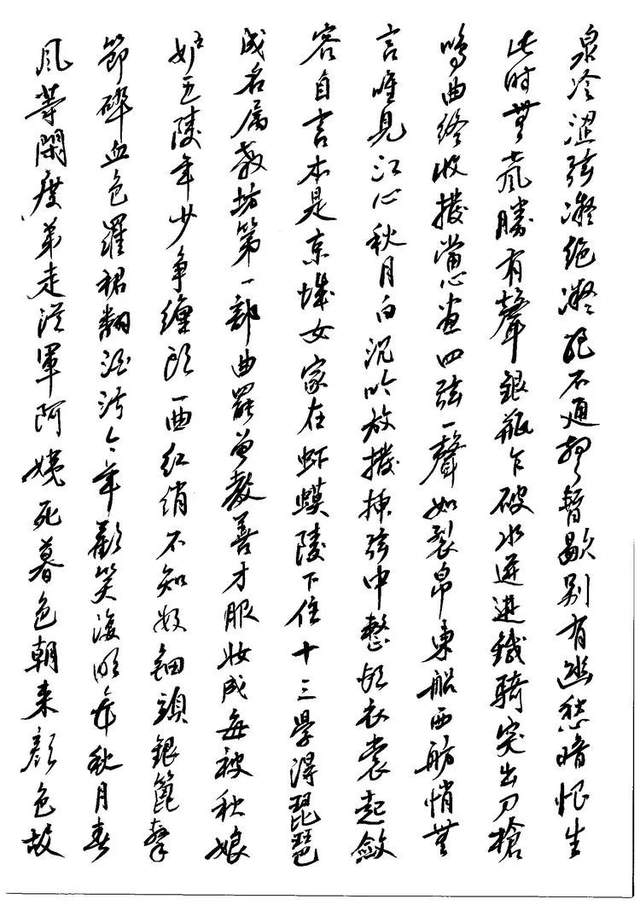 泉冷澀弦凝絕凝絕不通聲暫歇別有幽愁暗恨生
此時無聲勝有聲銀瓶乍破水迸鐵騎突出刀槍
鳴曲終收撥當心畫四弦一聲如裂帛東船西舫悄無
言唯見江心秋月白沉吟放撥插弦中整頓衣裳起斂
容自言本是京城女家在虾蟆陵下住十三學得琵琶
成名属教坊第一部曲罷曾教善才服妝成每被秋娘
妒五陵年少爭纏頭一曲紅綃不知數鈿頭銀篦擊
節碎血色羅裙翻酒污今年歡笑復明年秋月春
風等閑度弟走從軍阿姨死暮色朝來顏色故